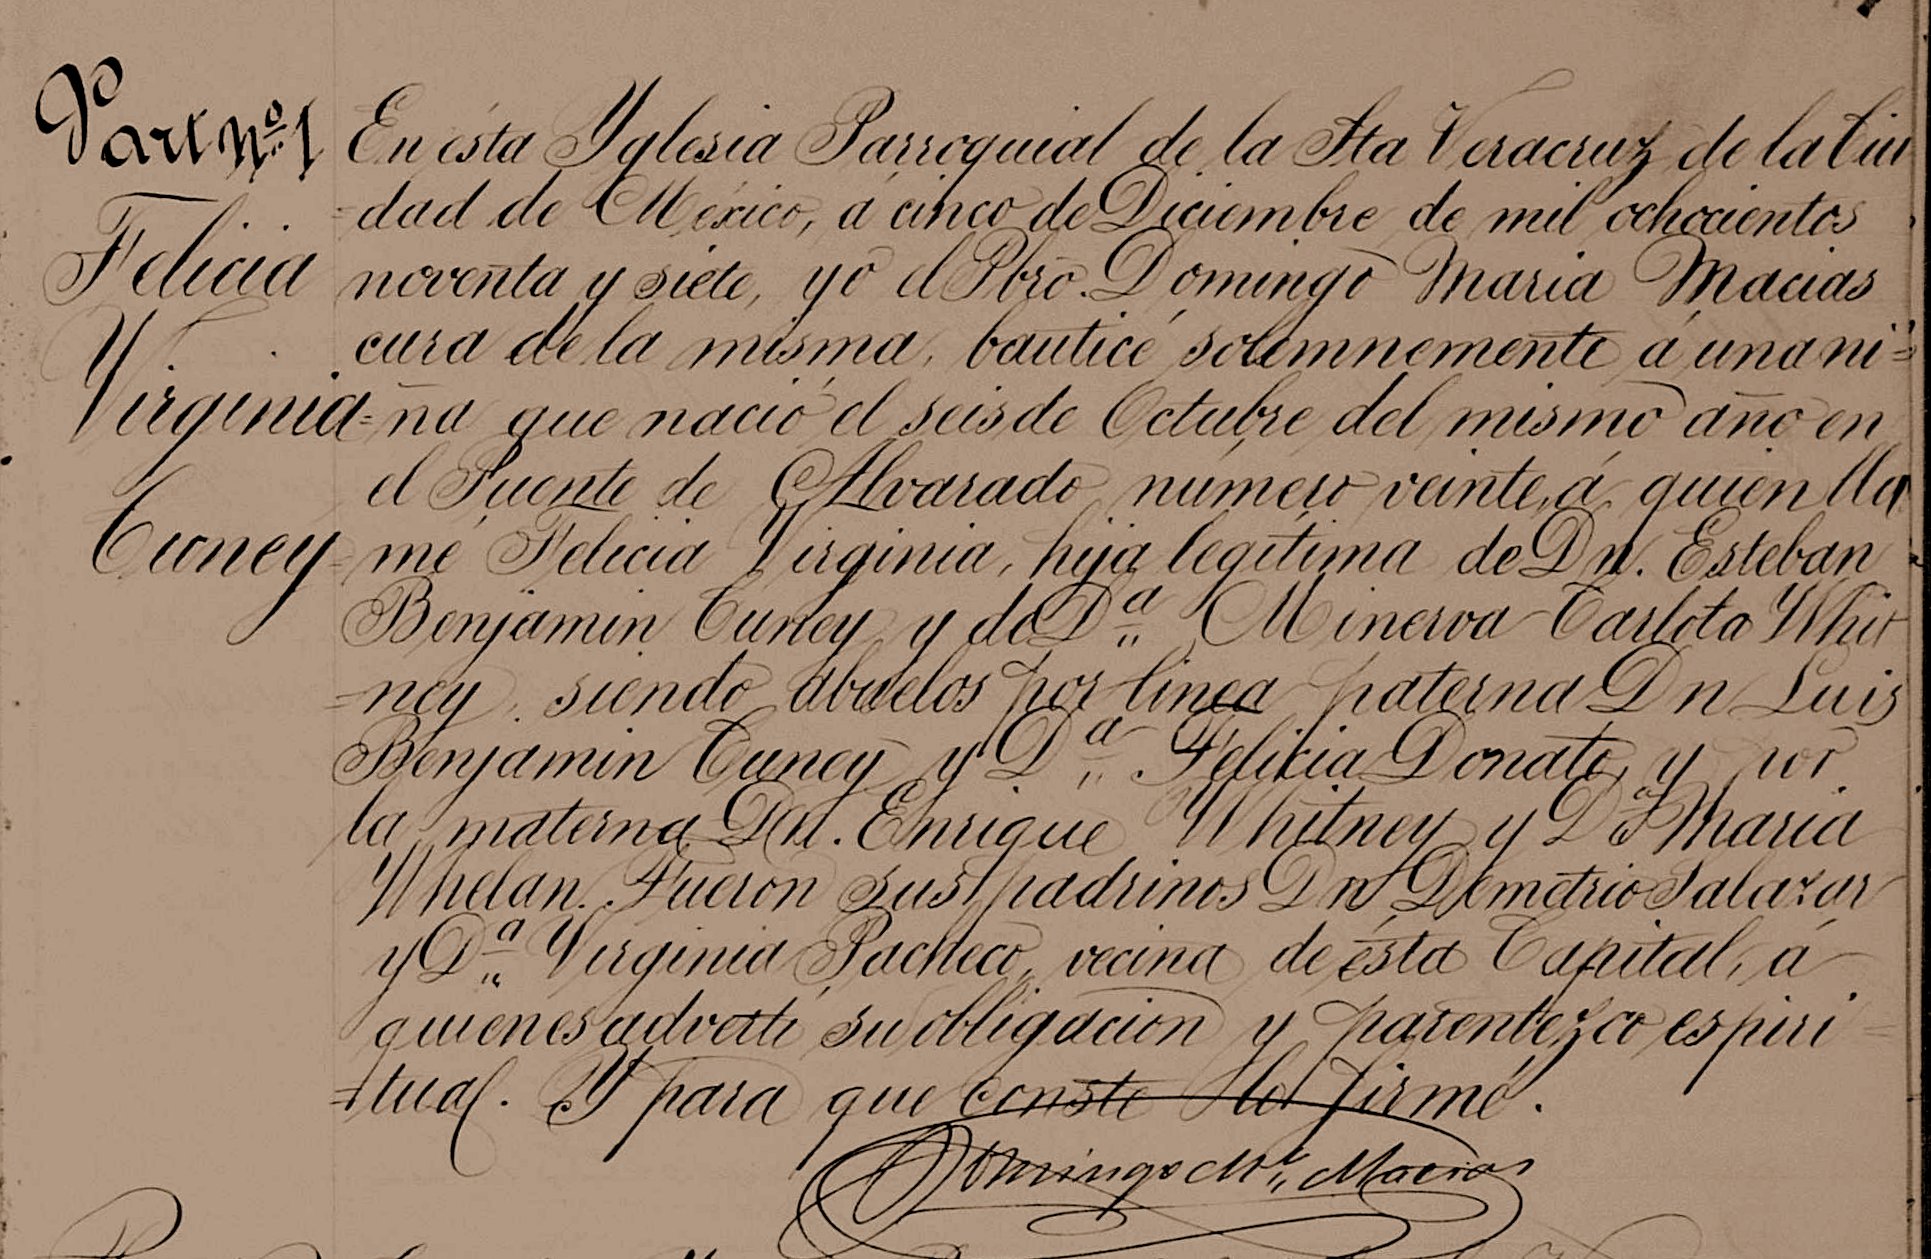 Part nº 1
Felicia
Virginia
Cuney
En ésta Yglesia Parroquial de la Sta Veracruz de la Ciu
=dad de México, á cinco de Diciembre de mil ochocientos
noventa y siete, yo el Pbro. Domingo Maria Macias
cura de la misma, bauticé solemnemente á una ni=
=ña que nació el seis de Octubre del mismo año en
el Puente de Alvarado número veinte, á quien lla
mé Felicia Virginia, hija legítima de Dn. Esteban
Benjamin Cuney y de Dª Minerva Carlota Whit
=ney, siendo abuelos por linea paterna Dn Luis
Benjamin Cuney y Dª Felicia Donato, y por
la materna Dn. Enrique Whitney y Dª Maria
Whelan. Fueron sus padrinos Dn Demetrio Salazar
y Dª Virginia Pacheco, vecina de ésta Capital, á
quienes advertí su obligación y parentezco espiri=
=tual. Y para que conste lo firmé.
Domingo Mª Macias